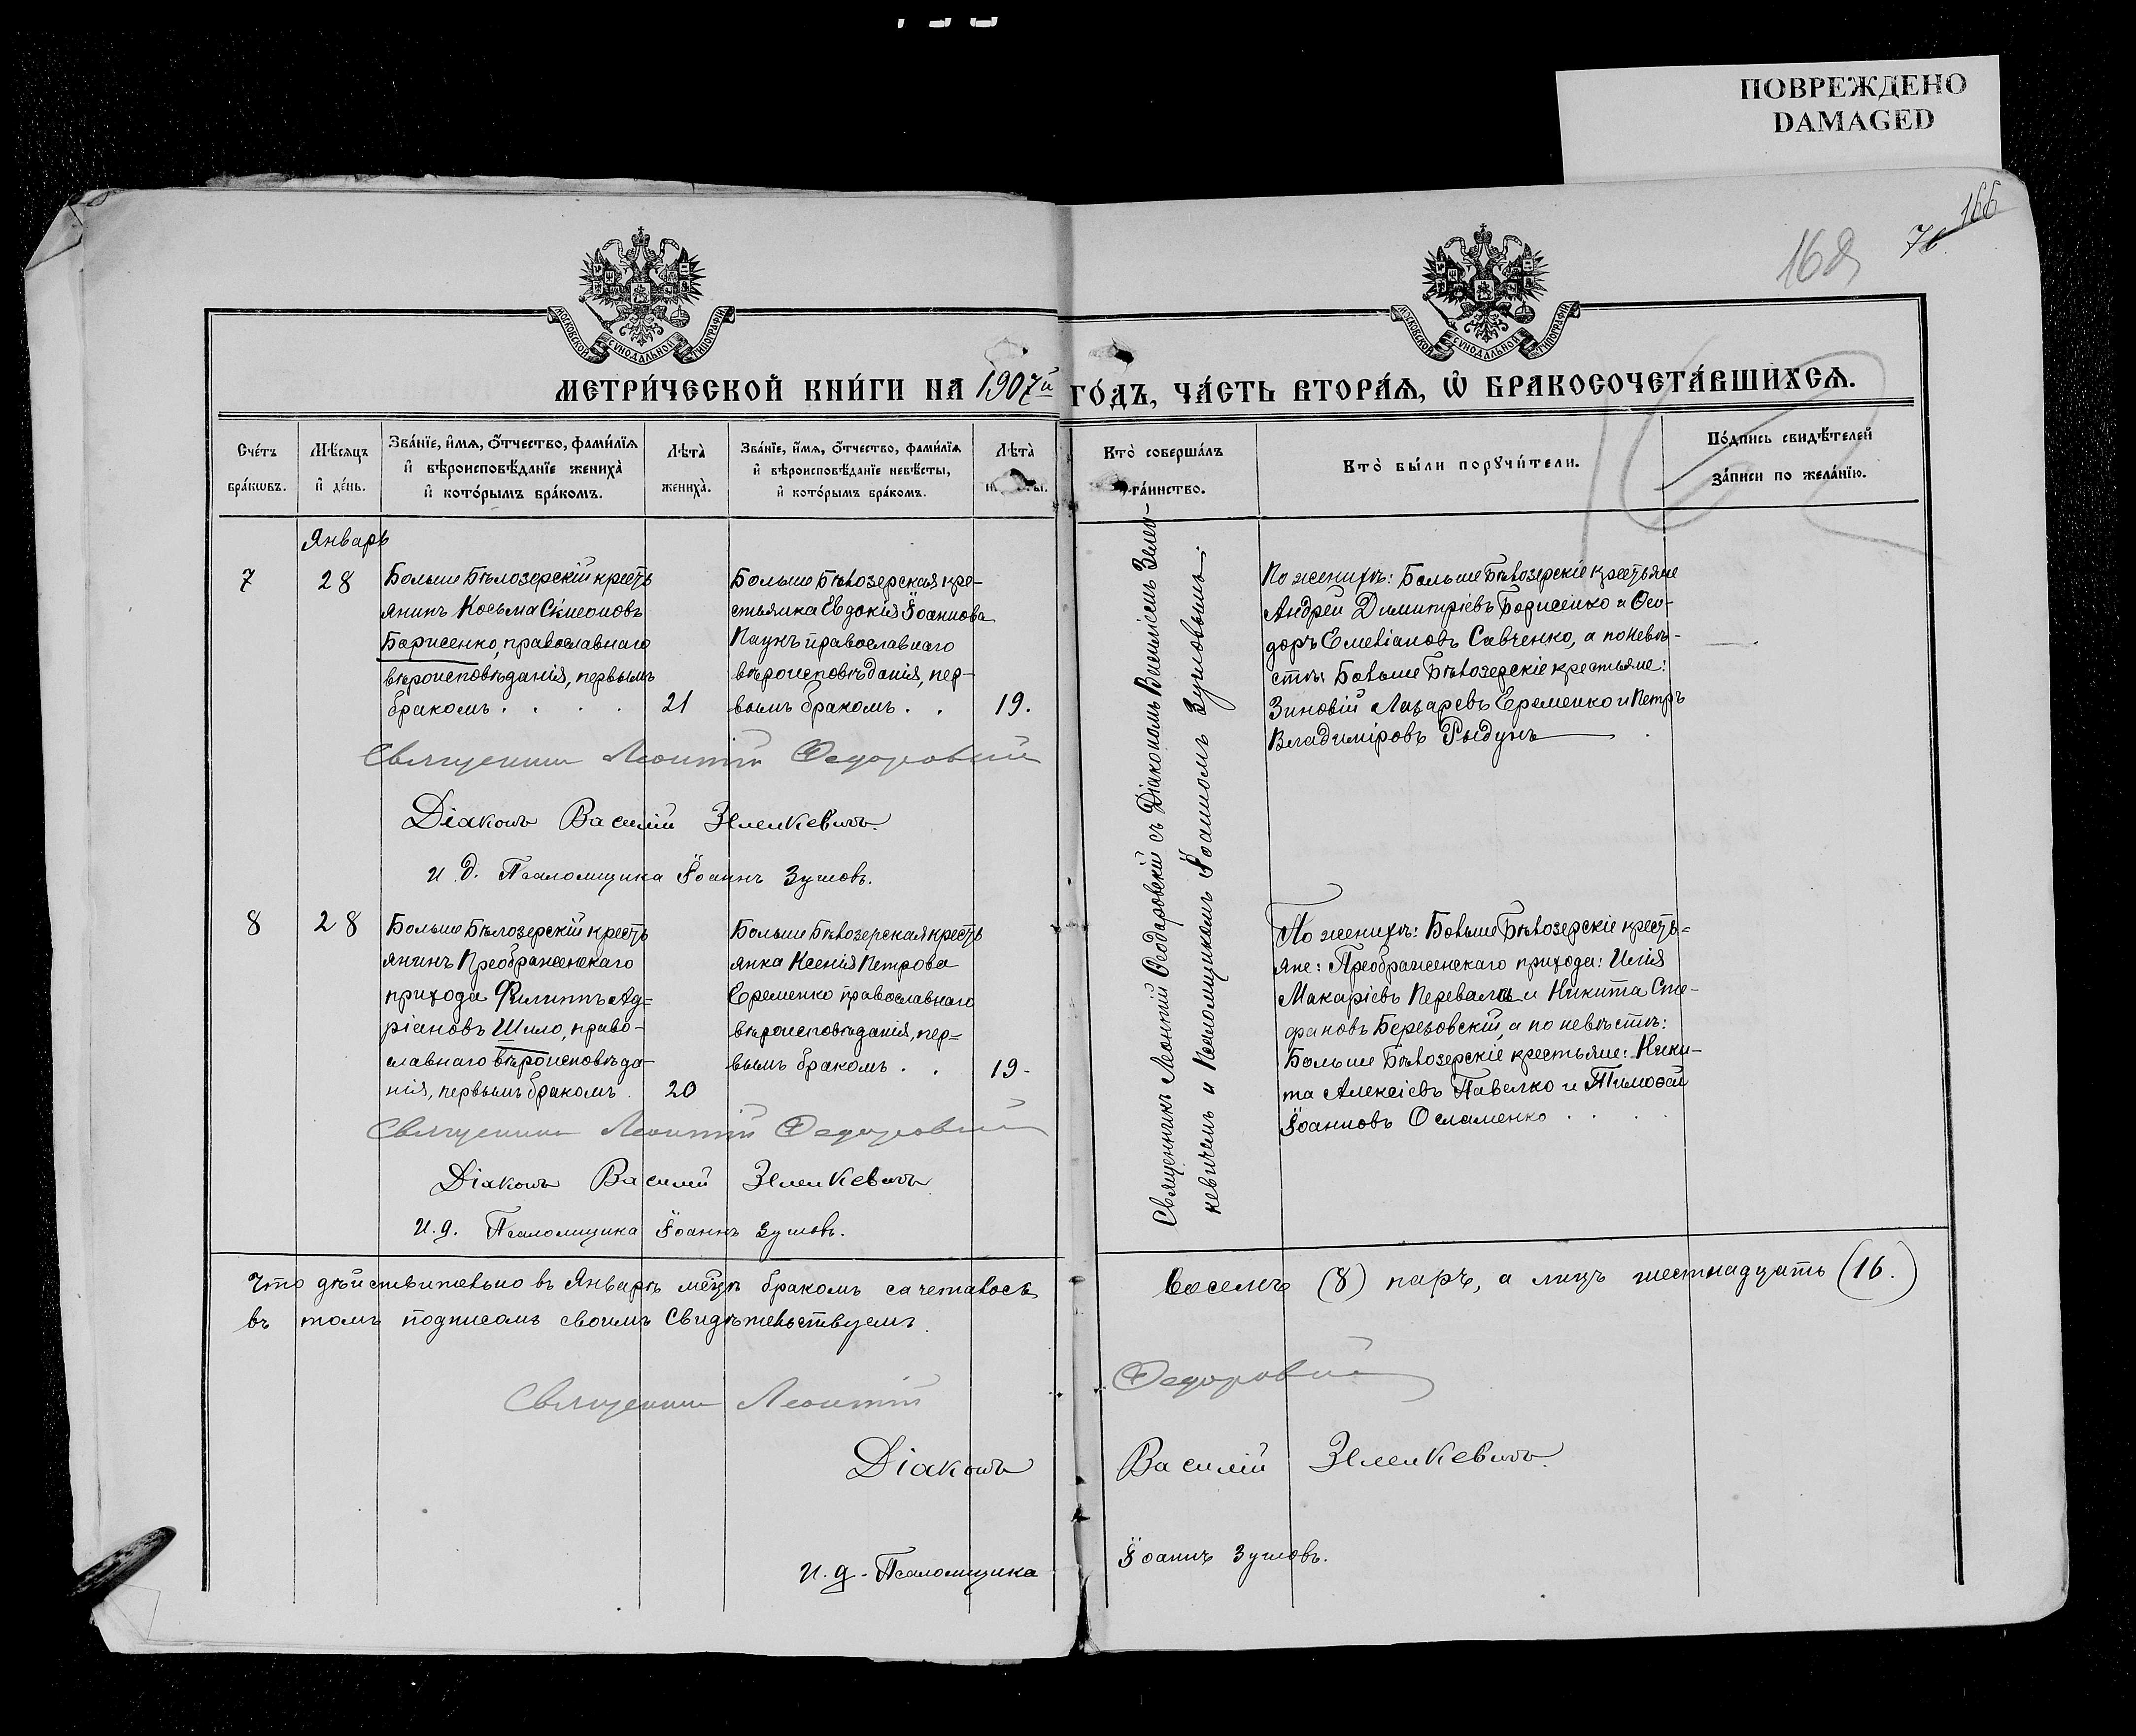 ПОВРЕЖДЕНО
DAMAGED
166
76
168
МОСКОВСКОЙ СѴНОДАЛЬНОЙ ТИПОГРАФІИ
МОСКОВСКОЙ СѴНОДАЛЬНОЙ ТИПОГРАФІИ
МЕТРИ́ЧЕСКОЙ КНИ́ГИ НА 1907й ГО́ДЪ, ЧА́СТЬ ВТОРА́Ѧ, Ѽ БРАКОСОЧЕТА́ВШИХСѦ.
Сче́тъ
бра́кѡвъ.
Мѣ́сѧцъ
и҆ де́нь.
Зва́нїе, и҆́мѧ, ѻ҆́тчество, фами́лїѧ
и҆ вѣроисповѣ́данїе жениха̀
и҆ кото́рымъ бра́комъ.
Лѣта̀
жениха̀.
Зва́нїе, и҆́мѧ, ѻ҆́тчество, фами́лїѧ
и҆ вѣроисповѣ́данїе невѣ́сты,
и҆ кото́рымъ бра́комъ.
Лѣта̀
Кто̀ соверша́лъ
та́инство.
Кто̀ бы́ли порꙋчи́тели.
По́дпись свидѣ́телей
за́писи по жела́нїю.
Январь
7
28
Больше Бѣлозерскій кресть
янинъ Косьма Симеоновъ
Борисенко, православнаго
вѣроисповѣданія, первымъ
бракомъ . . . .
21
Больше Бѣлозерская кре-
стьянка Евдокія Іоаннова
Паукъ православнаго
вѣроисповѣданія, пер-
вымъ бракомъ . .
19.
Священникъ Леонтій Ѳедоровскій съ Діакономъ Василіемъ Зелен-
кевичемъ и Псаломщикомъ Іоанномъ Зуповымъ.
По женихѣ: Больше Бѣлозерскіе крестьяне
Андрей Димитріевъ Борисенко и Ѳео-
доръ Емеліановъ Савченко, а по невѣ-
стѣ: Больше Бѣлозерскіе крестьяне:
Зиновій Лазаревъ Еременко и Петръ
Владиміровъ Рыдунъ
Священникъ Леонтій Ѳедоровскій
Діаконъ Василій Зеленкевичъ.
и. д. Псаломщика Іоаннъ Зуповъ.
8
28
Больше Бѣлозерскій кресть
янинъ Преображенскаго
прихода Филиппъ Ад=
ріановъ Шило, право-
славнаго вѣроисповѣда-
нія, первымъ бракомъ .
20
Больше Бѣлозерская кресть
янка Ксенія Петрова
Еременко православнаго
вѣроисповѣданія, пер=
вымъ бракомъ . .
19-
По женихѣ: Больше Бѣлозерскіе кресть=
яне: Преображенскаго прихода: Илія
Макаріевъ Перевала и Никита Сте-
фановъ Березовскій, а по невѣстѣ:
Больше Бѣлозерскіе крестьяне: Ники-
та Алексіевъ Павелко и Тимоѳей
Іоанновъ Осламенко . . . .
Священникъ Леонтій Ѳедоровскій
Діаконъ Василій Зеленкевичъ
И. д. Псаломщика Іоаннъ Зуповъ.
Что дѣйствительно въ Январѣ мѣцѣ бракомъ сочеталось восемь (8) паръ, а лицъ шестнадцать (16.)
въ томъ подписомъ своимъ свидѣтельствуемъ.
Священникъ Леонтій Ѳедоровскій
Діаконъ Василій Зеленкевичъ.
И. д. Псаломщика Іоаннъ Зуповъ.